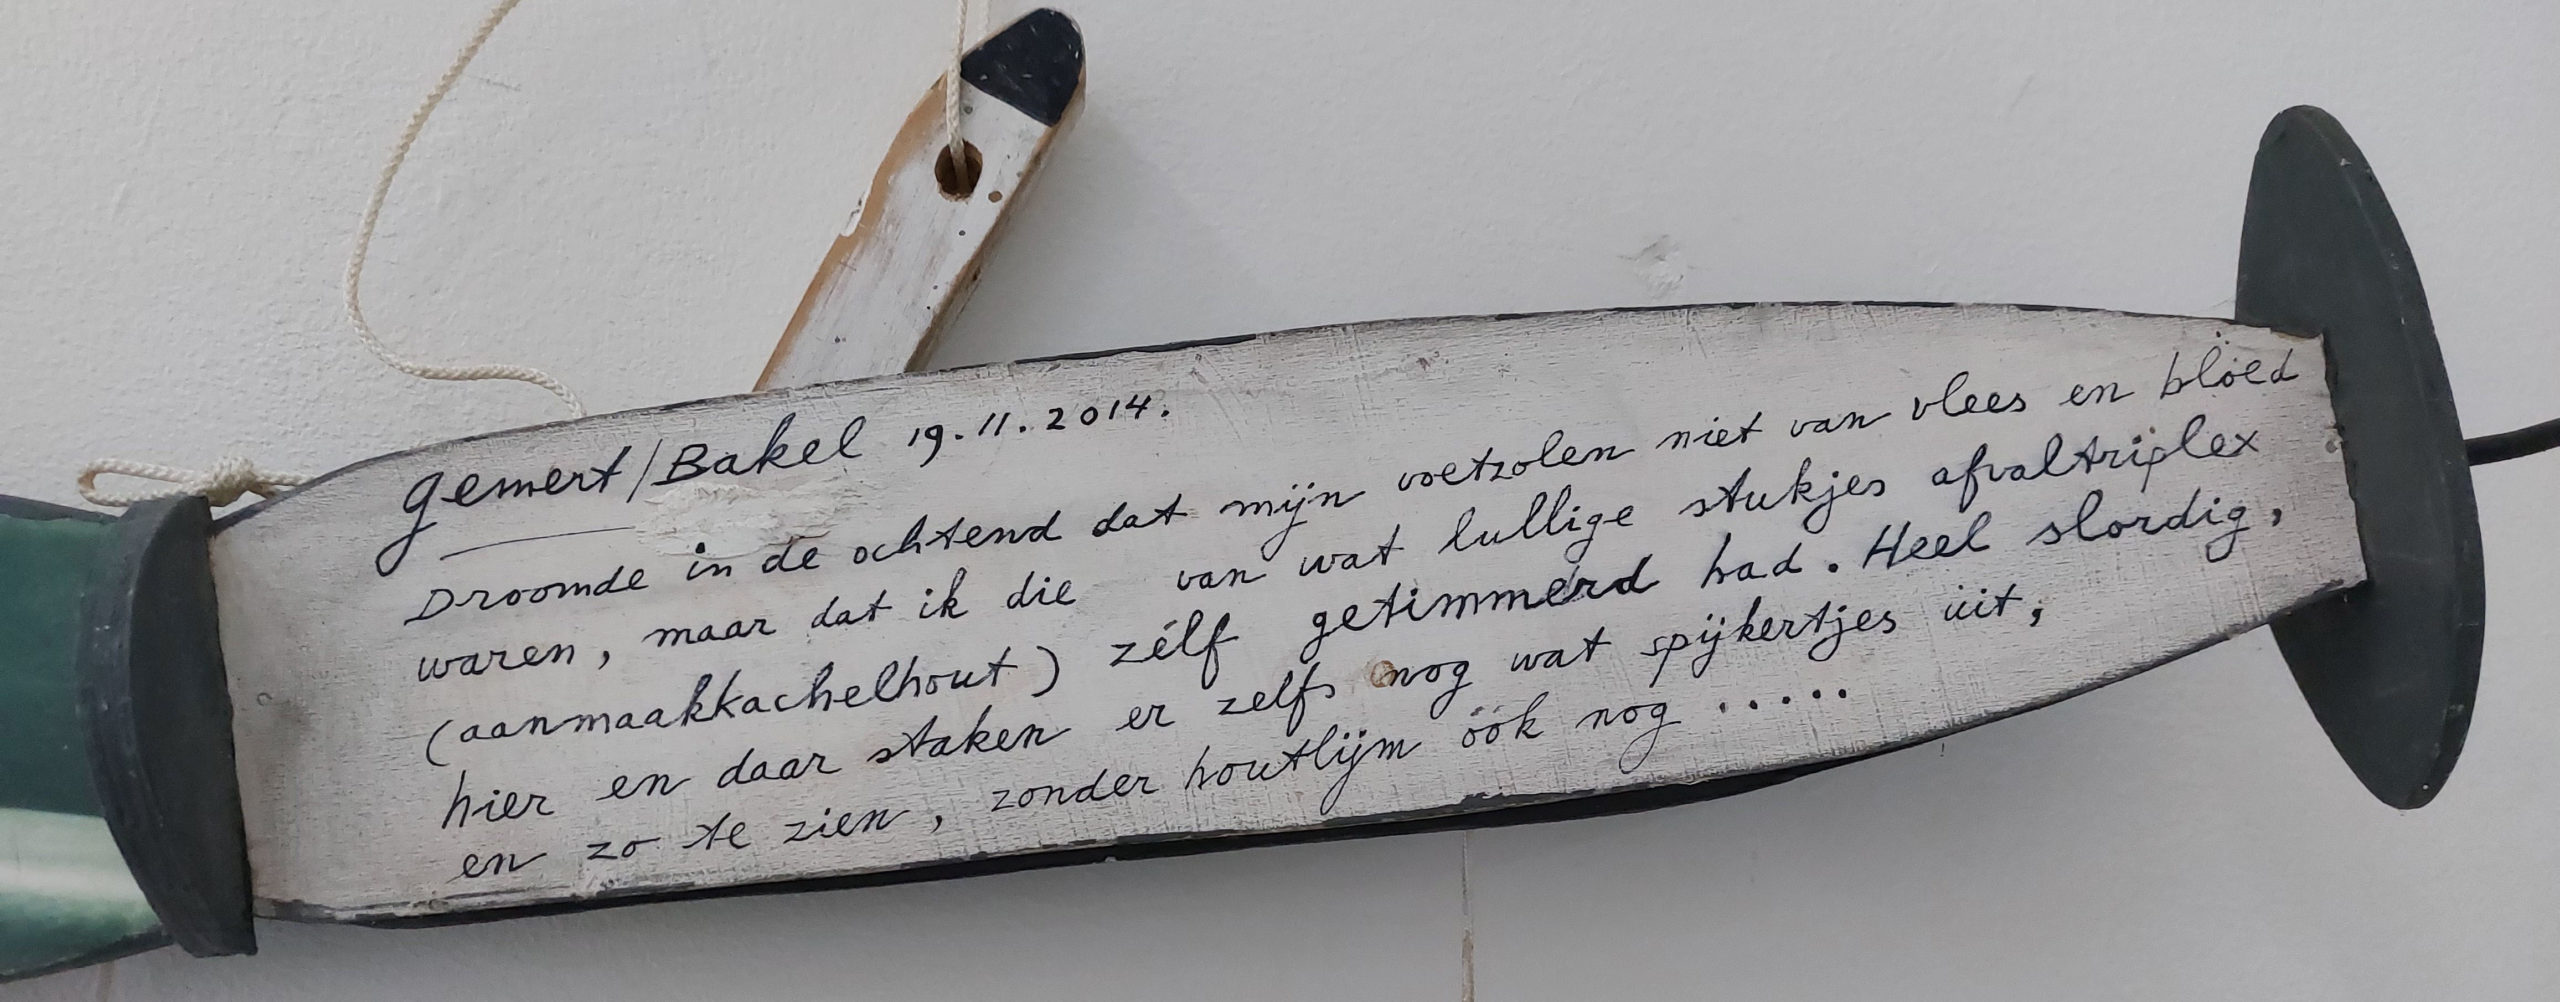 gemert/Bakel 19.11.2014.
Droomde in de ochtend dat mijn voetzolen niet van vlees en bloed
waren, maar dat ik die van wat lullige stukjes afvaltriplex
(aanmaakkachelhout) zélf getimmerd had. Heel slordig,
hier en daar staken er zelfs nog wat spijkertjes uit,
en zo te zien, zonder houtlijm óók nog .....